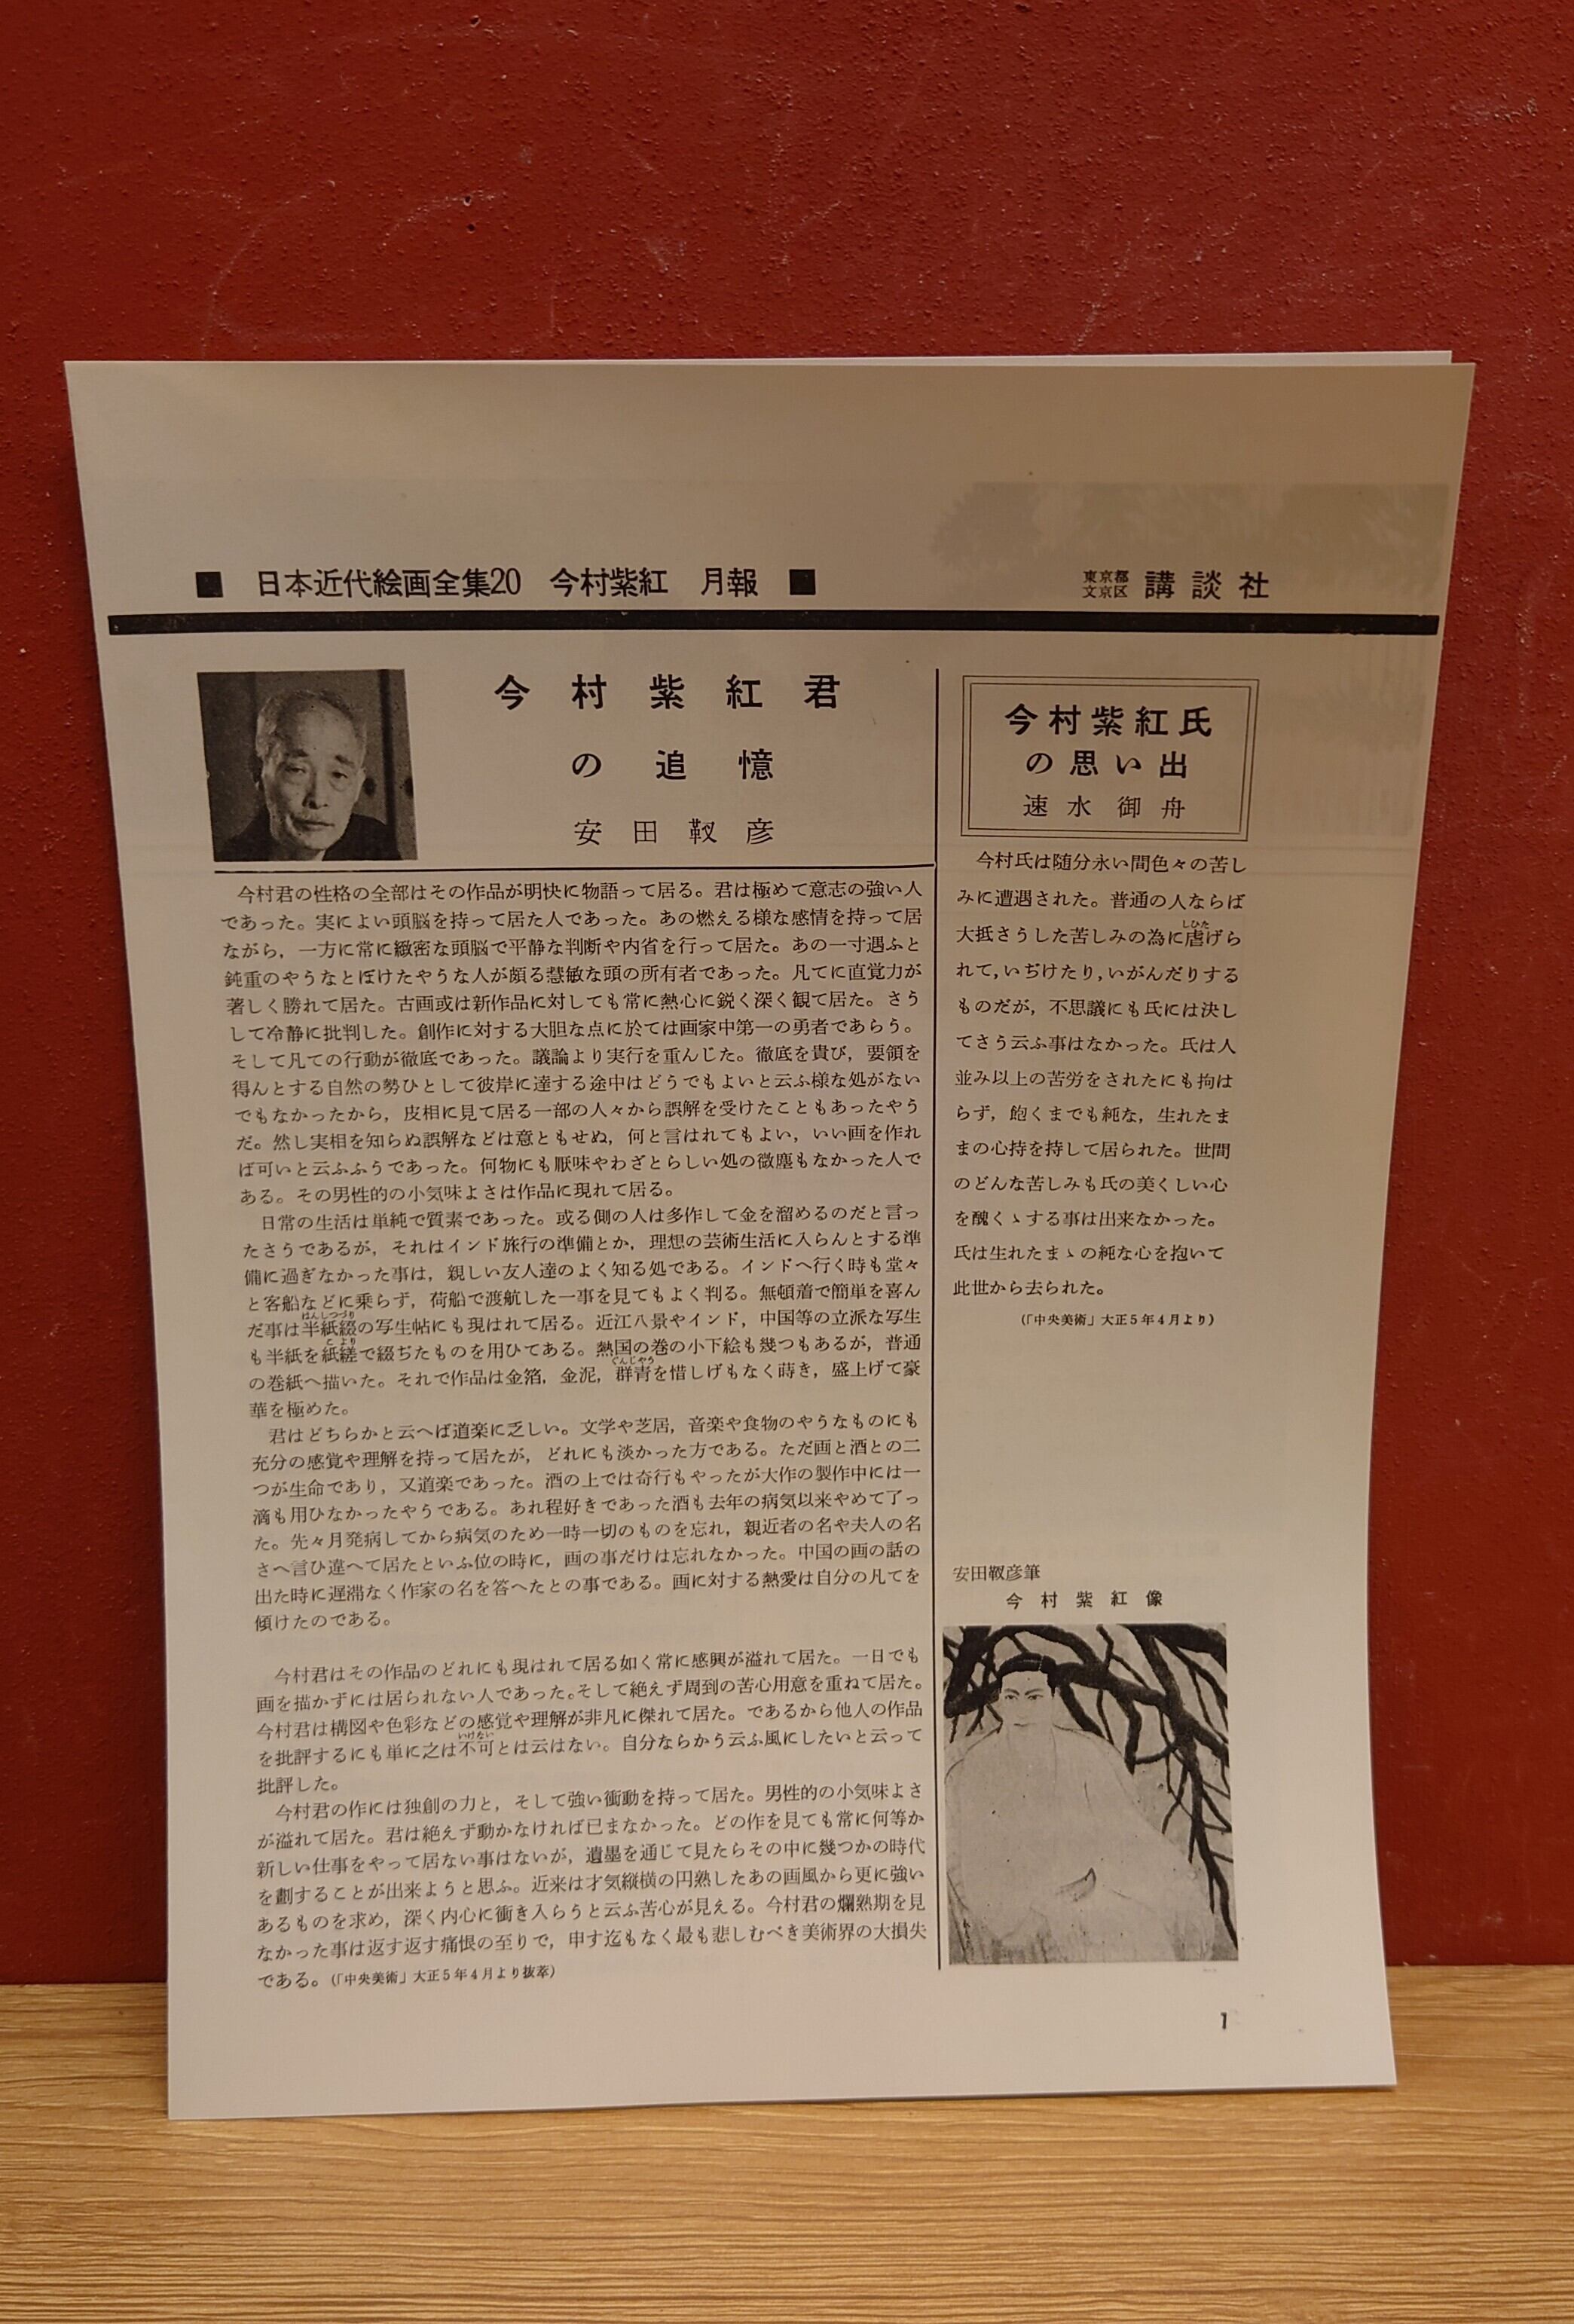 ■ 日本近代絵画全集20 今村紫紅 月報 ■
東京都
文京区 講談社
今村紫紅君
の追憶
安田靫彦
今村君の性格の全部はその作品が明快に物語って居る。君は極めて意志の強い人
であった。実によい頭脳を持って居た人であった。あの燃える様な感情を持って居
ながら，一方に常に緻密な頭脳で平静な判断や内省を行って居た。あの一寸遇ふと
鈍重のやうなとぼけたやうな人が頗る慧敏な頭の所有者であった。凡てに直覚力が
著しく勝れて居た。古画或は新作品に対しても常に熱心に鋭く深く観て居た。さう
して冷静に批判した。創作に対する大胆な点に於ては画家中第一の勇者であらう。
そして凡ての行動が徹底であった。議論より実行を重んじた。徹底を貴び，要領を
得んとする自然の勢ひとして彼岸に達する途中はどうでもよいと云ふ様な処がない
でもなかったから，皮相に見て居る一部の人々から誤解を受けたこともあったやう
だ。然し実相を知らぬ誤解などは意ともせぬ，何と言はれてもよい，いい画を作れ
ば可いと云ふふうであった。何物にも厭味やわざとらしい処の微塵もなかった人で
ある。その男性的の小気味よさは作品に現れて居る。
日常の生活は単純で質素であった。或る側の人は多作して金を溜めるのだと言っ
たさうであるが，それはインド旅行の準備とか，理想の芸術生活に入らんとする準
備に過ぎなかった事は，親しい友人達のよく知る処である。インドへ行く時も堂々
と客船などに乗らず，荷船で渡航した一事を見てもよく判る。無頓着で簡単を喜ん
だ事は半紙綴の写生帖にも現はれて居る。近江八景やインド，中国等の立派な写生
も半紙を紙縒で綴ぢたものを用ひてある。熱国の巻の小下絵も幾つもあるが，普通
の巻紙へ描いた。それで作品は金箔，金泥，群青を惜しげもなく蒔き，盛上げて豪
華を極めた。
君はどちらかと云へば道楽に乏しい。文学や芝居，音楽や食物のやうなものにも
充分の感覚や理解を持って居たが，どれにも淡かった方である。ただ画と酒との二
つが生命であり，又道楽であった。酒の上では奇行もやったが大作の製作中には一
滴も用ひなかったやうである。あれ程好きであった酒も去年の病気以来やめて了っ
た。先々月発病してから病気のため一時一切のものを忘れ，親近者の名や夫人の名
さへ言ひ違へて居たといふ位の時に，画の事だけは忘れなかった。中国の画の話の
出た時に遅滞なく作家の名を答へたとの事である。画に対する熱愛は自分の凡てを
傾けたのである。
今村君はその作品のどれにも現はれて居る如く常に感興が溢れて居た。一日でも
画を描かずには居られない人であった。そして絶えず周到の苦心用意を重ねて居た。
今村君は構図や色彩などの感覚や理解が非凡に傑れて居た。であるから他人の作品
を批評するにも単に之は不可とは云はない。自分ならかう云ふ風にしたいと云って
批評した。
今村君の作には独創の力と，そして強い衝動を持って居た。男性的の小気味よさ
が溢れて居た。君は絶えず動かなければ已まなかった。どの作を見ても常に何等か
新しい仕事をやって居ない事はないが，遺墨を通じて見たらその中に幾つかの時代
を劃することが出来ようと思ふ。近来は才気縦横の円熟したあの画風から更に強い
あるものを求め，深く内心に衝き入らうと云ふ苦心が見える。今村君の爛熟期を見
なかった事は返す返す痛恨の至りで，申す迄もなく最も悲しむべき美術界の大損失
である。（「中央美術」大正5年4月より抜萃）
今村紫紅氏
の思い出
速水御舟
今村氏は随分永い間色々の苦し
みに遭遇された。普通の人ならば
大抵さうした苦しみの為に虐げら
れて，いぢけたり，いがんだりする
ものだが，不思議にも氏には決し
てさう云ふ事はなかった。氏は人
並み以上の苦労をされたにも拘は
らず，飽くまでも純な，生れたま
まの心持を持して居られた。世間
のどんな苦しみも氏の美くしい心
を醜くゝする事は出来なかった。
氏は生れたまゝの純な心を抱いて
此世から去られた。
（「中央美術」大正5年4月より）
安田靫彦筆
今村紫紅像
1